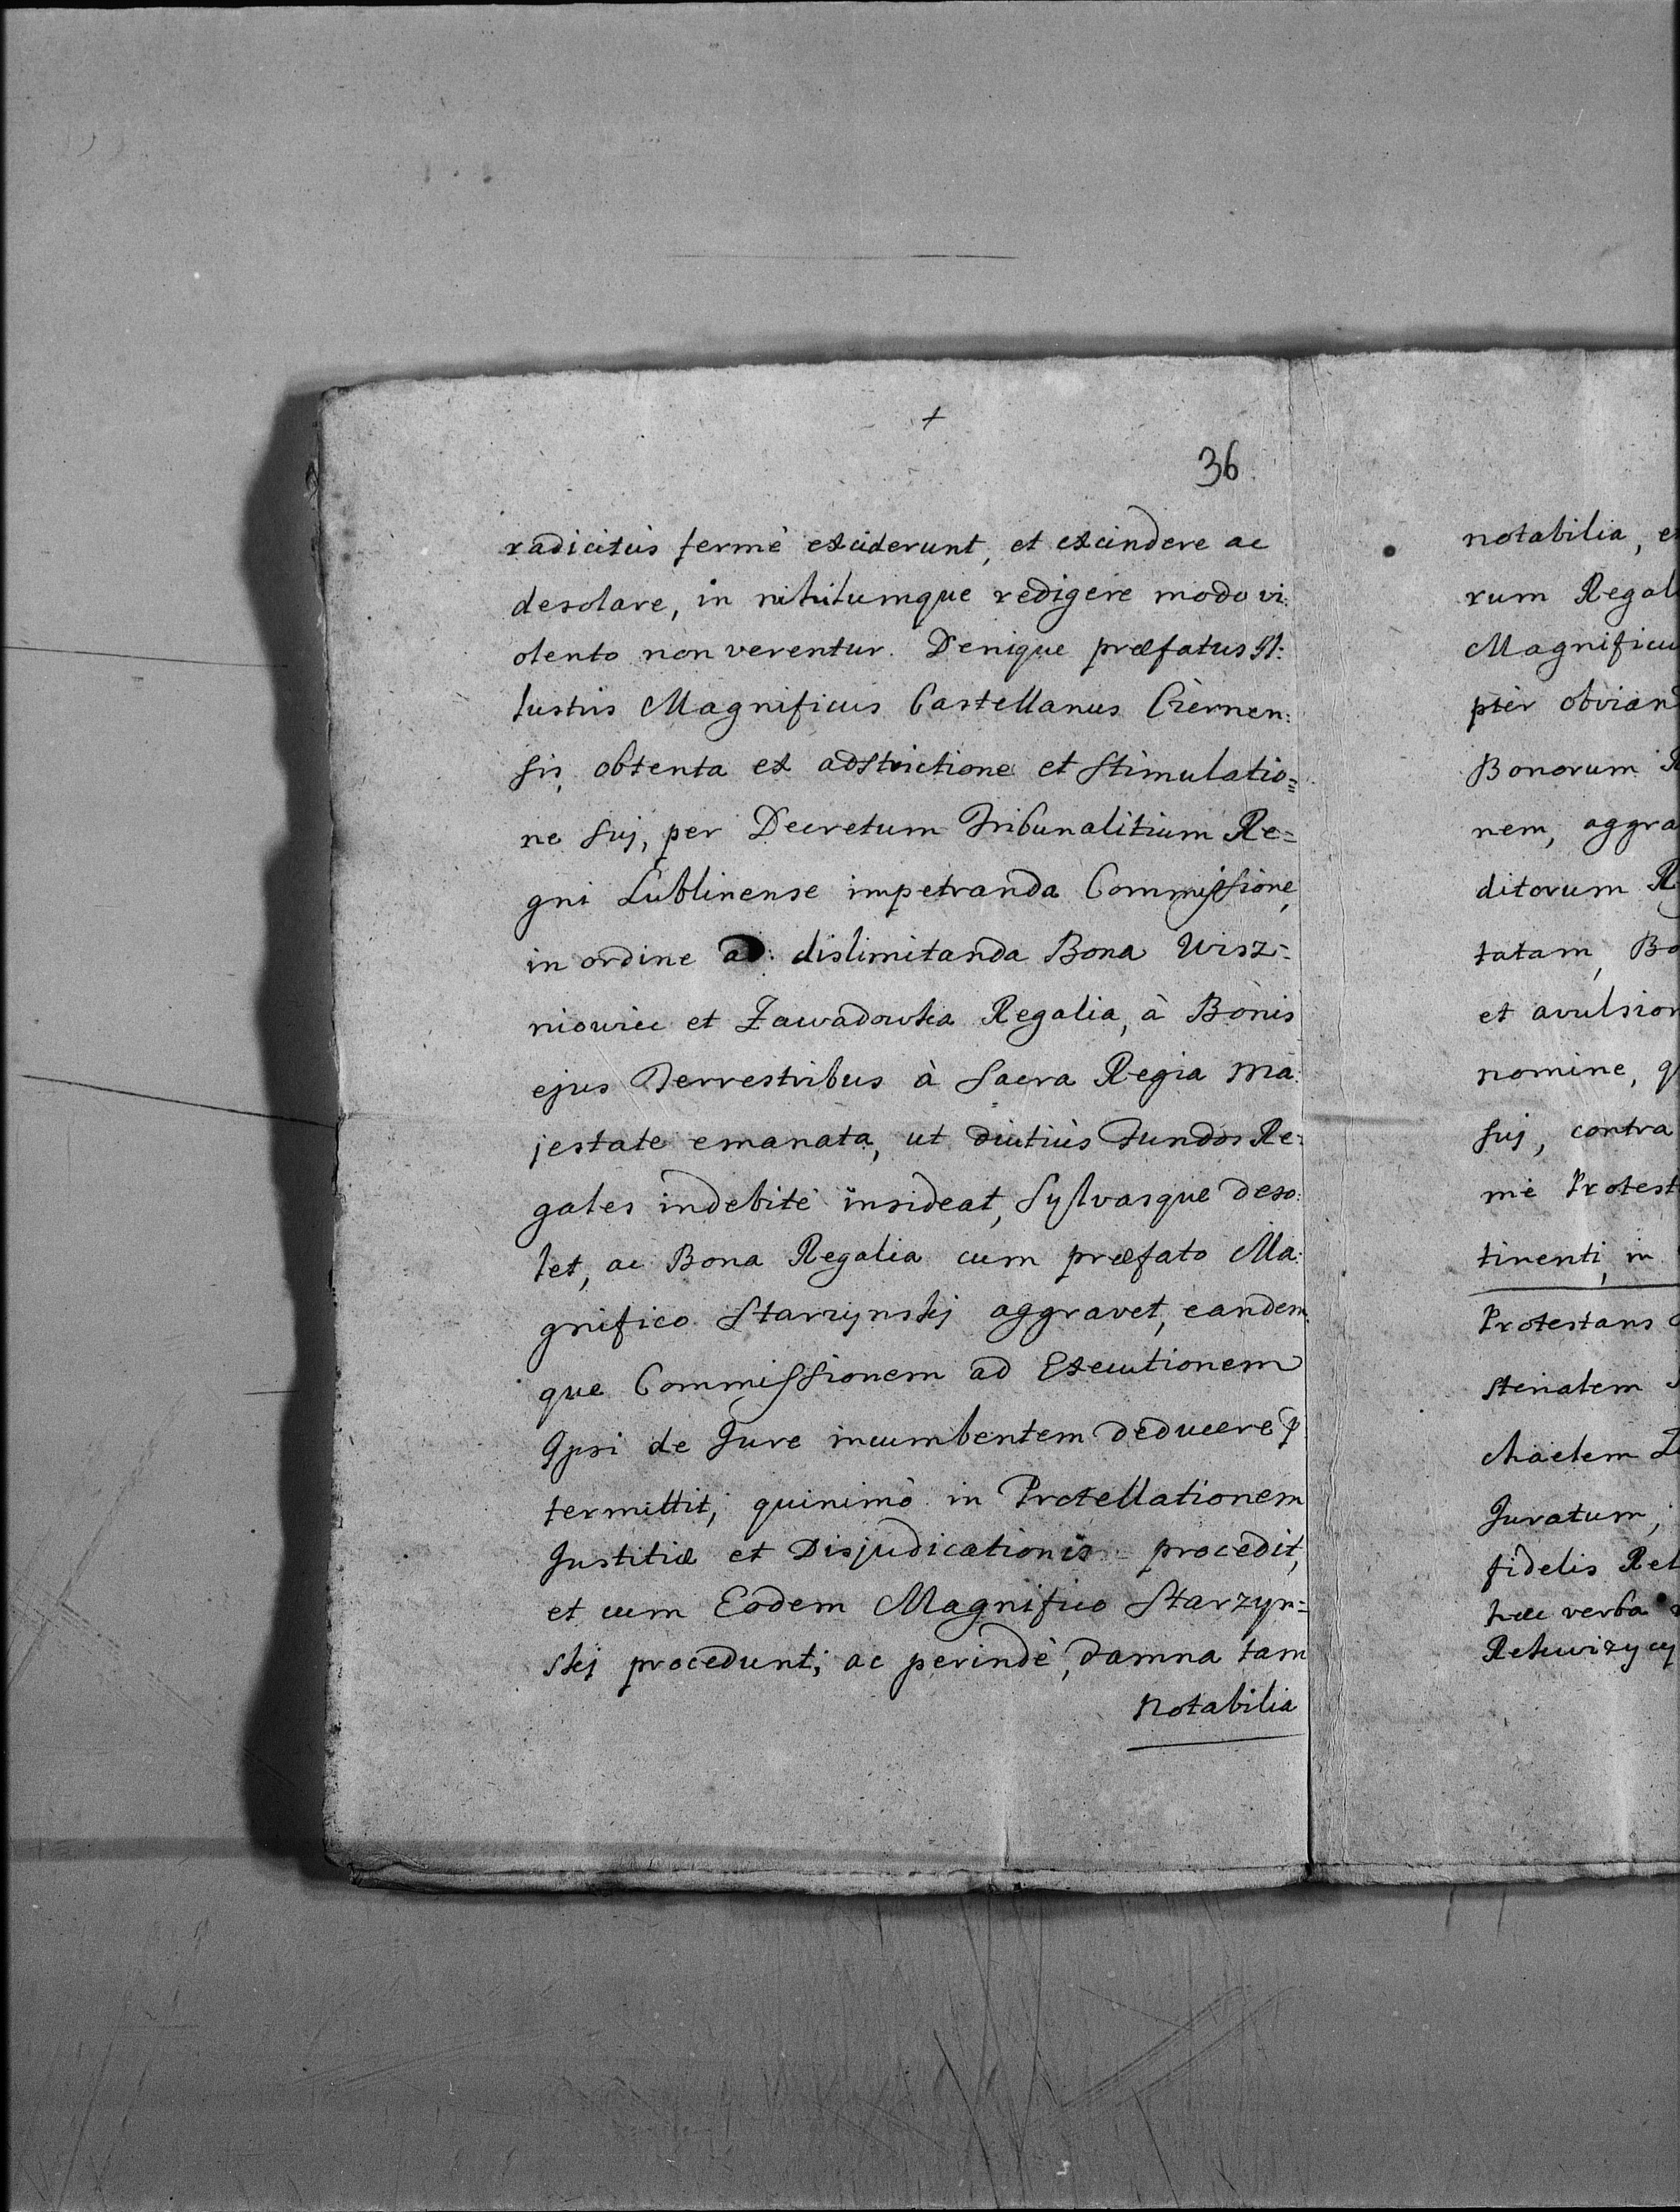 +
36
radicitùs fermè exciderunt, et excindere ac
desolare, in nihilumque redigere modo vi:
olento non verentur. Denique præfatus Il:
lustris Magnificus Castellanus Czernen:
sis, obtenta ex adstrictione et stimulatio=
ne suj, per Decretum Tribunalitium Re=
gni Lublinense impetranda Commissione,
in ordine ad dislimitanda Bona Wisz=
niowiec et Zawadowka Regalia, à Bonis
ejus Terrestribus à Sacra Regia Ma:
jestate emanata, ut diutiùs Fundos Re:
gales indebitè insideat, Sylvasque deso:
let, ac Bona Regalia cum præfato Ma:
gnifico Starzynskj aggravet, eandem
que Commissionem ad Executionem
Ipsi de Jure incumbentem deducere p
termittit, quinimò in Protellationem
Justitiæ et Disjudicationis procedit,
et cum Eodem Magnifico Starzyn=
skj procedunt; ac perindè, damna tam
notabilia
notabilia, e
rum Regal
Magnificu
ptèr obvian
Bonorum R
nem, aggra
ditorum R
tatam, Bo
et avulsion
nomine, q
suj, contra
me Protest
tinenti, in
Protestans
sterialem
chaelem
Juratum,
fidelis Rel
hæc verba
Rekwizycy